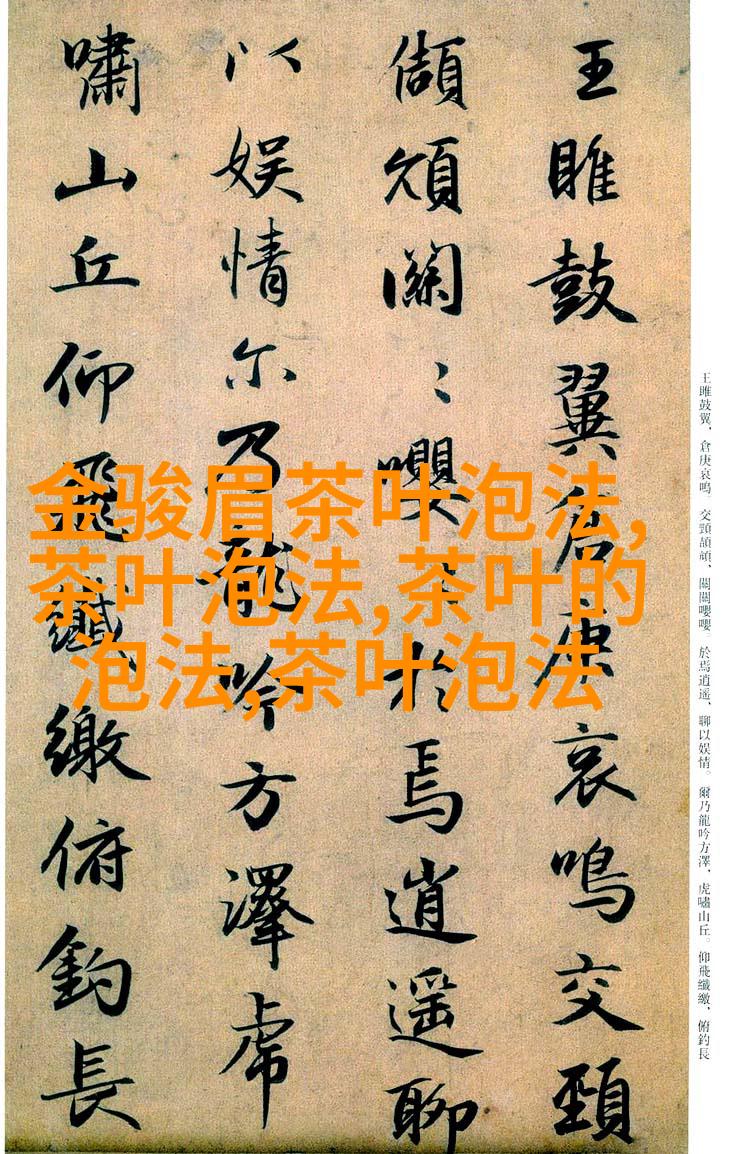 王雎鼓翼倉庚哀鳴交頸
頡頏關〻嚶〻於焉逍遥聊
以娱情尔乃龍吟方澤虎
嘯山丘仰飛纖繳俯釣長
金骏眉茶叶泡法,
茶叶泡法,茶叶的
泡法,茶叶泡法
王雎鼓翼、倉庚哀鳴。交頸頡頏、關關嚶嚶。於焉逍遥、聊以娱情。爾乃龍吟方澤、虎嘯山丘。仰飛纖繳、俯釣長